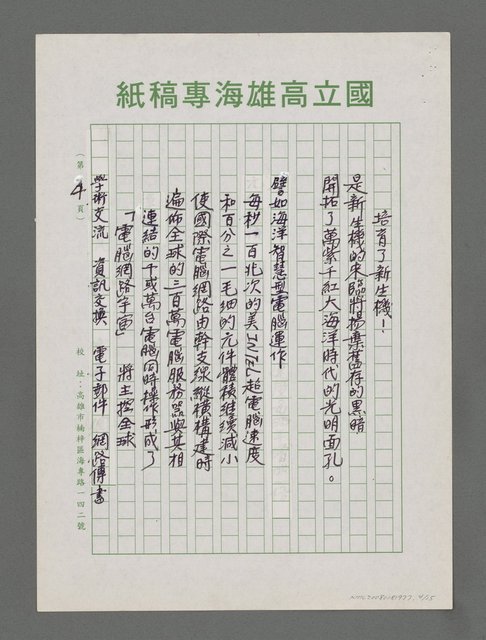 國立高雄海專稿紙
培育了新生機！
是新生機的來臨將揚棄舊存的黑暗
開拓了萬紫千紅大海洋時代的光明面孔。
譬如海洋智慧型電腦運作
每秒一百兆次的美INTEL超電腦速度
和百分之一毛細的元件體積維環減小
使國際電腦網路由幹支線縱橫構建時
遍佈全球的三百萬電腦服務器與其相
連結的千或萬台電腦同時操作形成了
「電腦網路宇宙」 將主控全球
學術交流 資訊交換 電子郵件 網路傳書
（第4頁）
校 址：高雄市楠梓區海專路一四二號